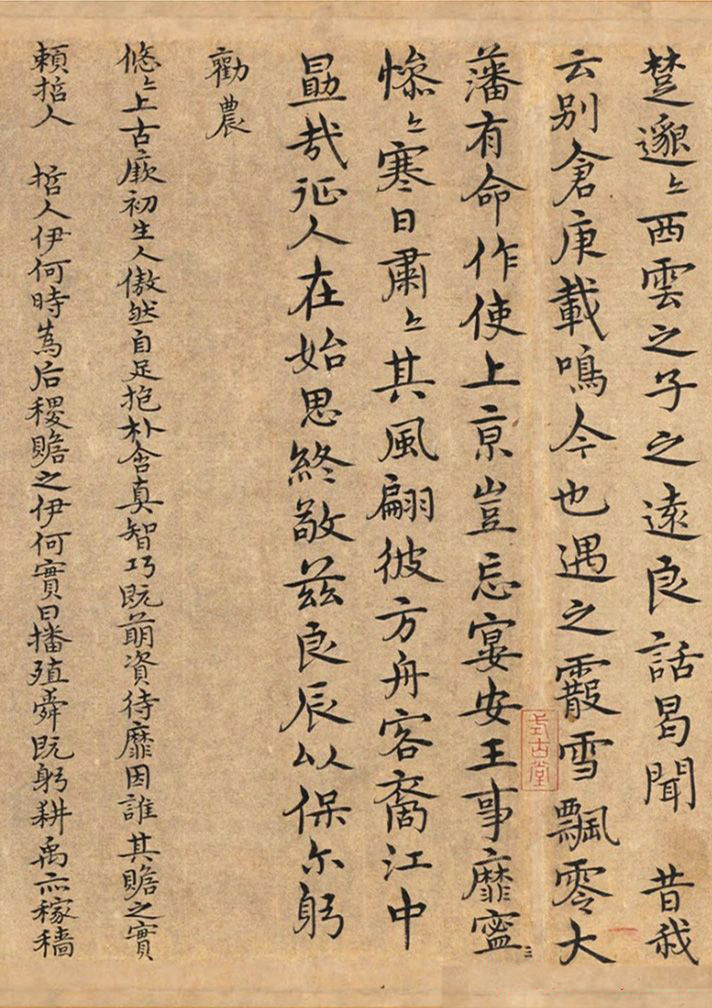 楚邈〻西雲之子之遠良話曷聞　昔我
云别倉庚載鳴今也遇之霰雪飄零大
藩有命作使上亰豈忘宴安王事靡寧
三
式古堂
慘〻寒日肅〻其風翩彼方舟容裔江中
勗哉征人在始思終敬茲良辰以保尔躬
勸農
悠〻上古厥初生人傲然自足抱朴含真智巧既萌資待靡因誰其贍之實
賴哲人　哲人伊何時為后稷贍之伊何實曰播殖舜既躬耕禹亦稼穡